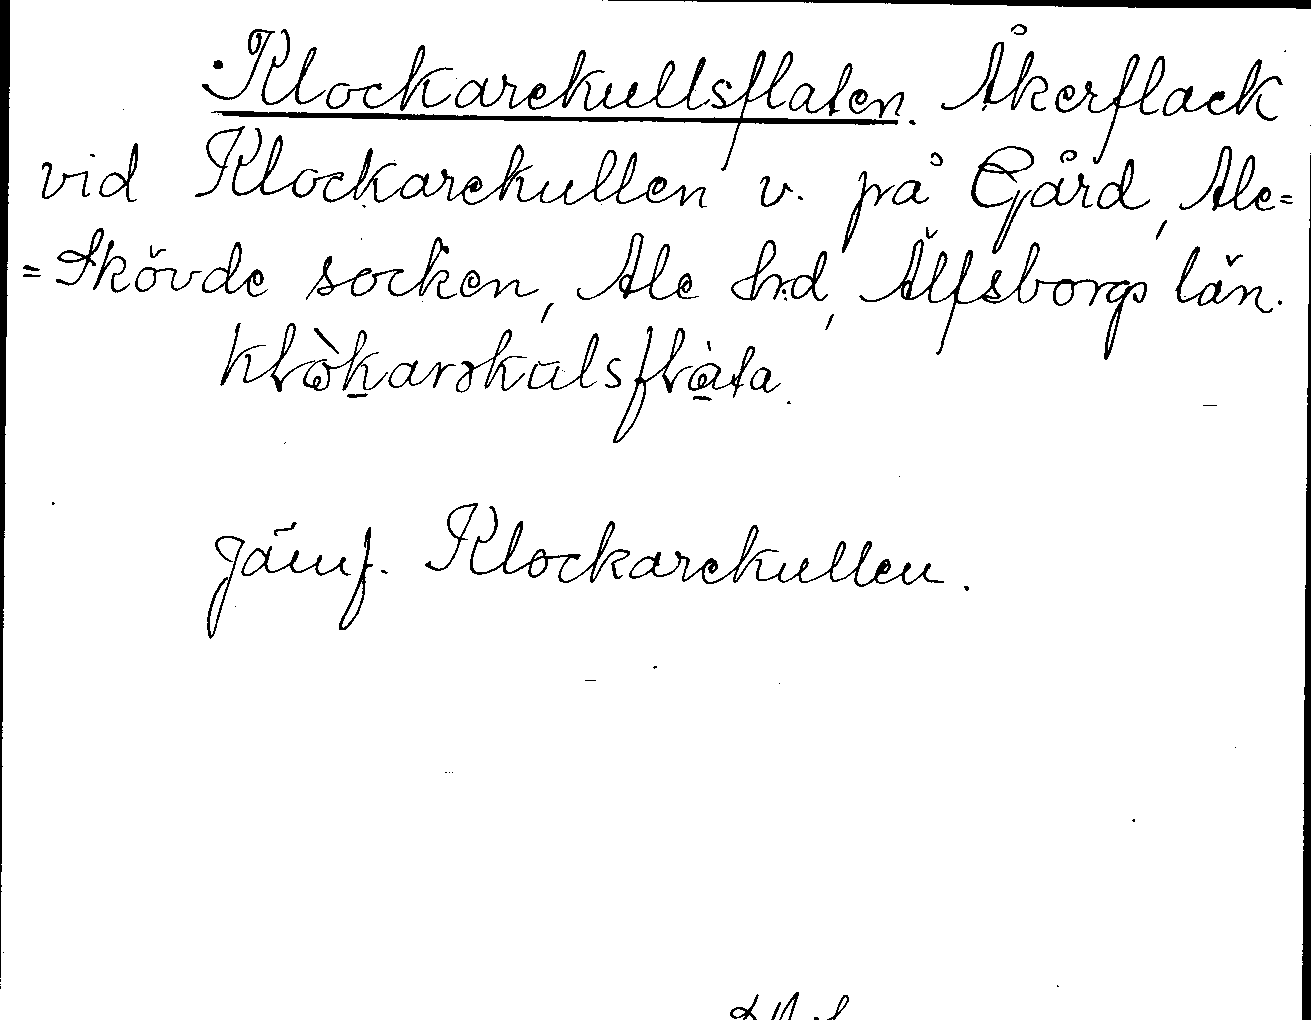 Klockarekullsflaten. Åkerflack
vid Klockarekullen v. på Gård, Ale=
=Skövde socken, Ale hrd, Älfsborgs län.
klòkarəkulsflàta.
jämf. Klockarekullen.